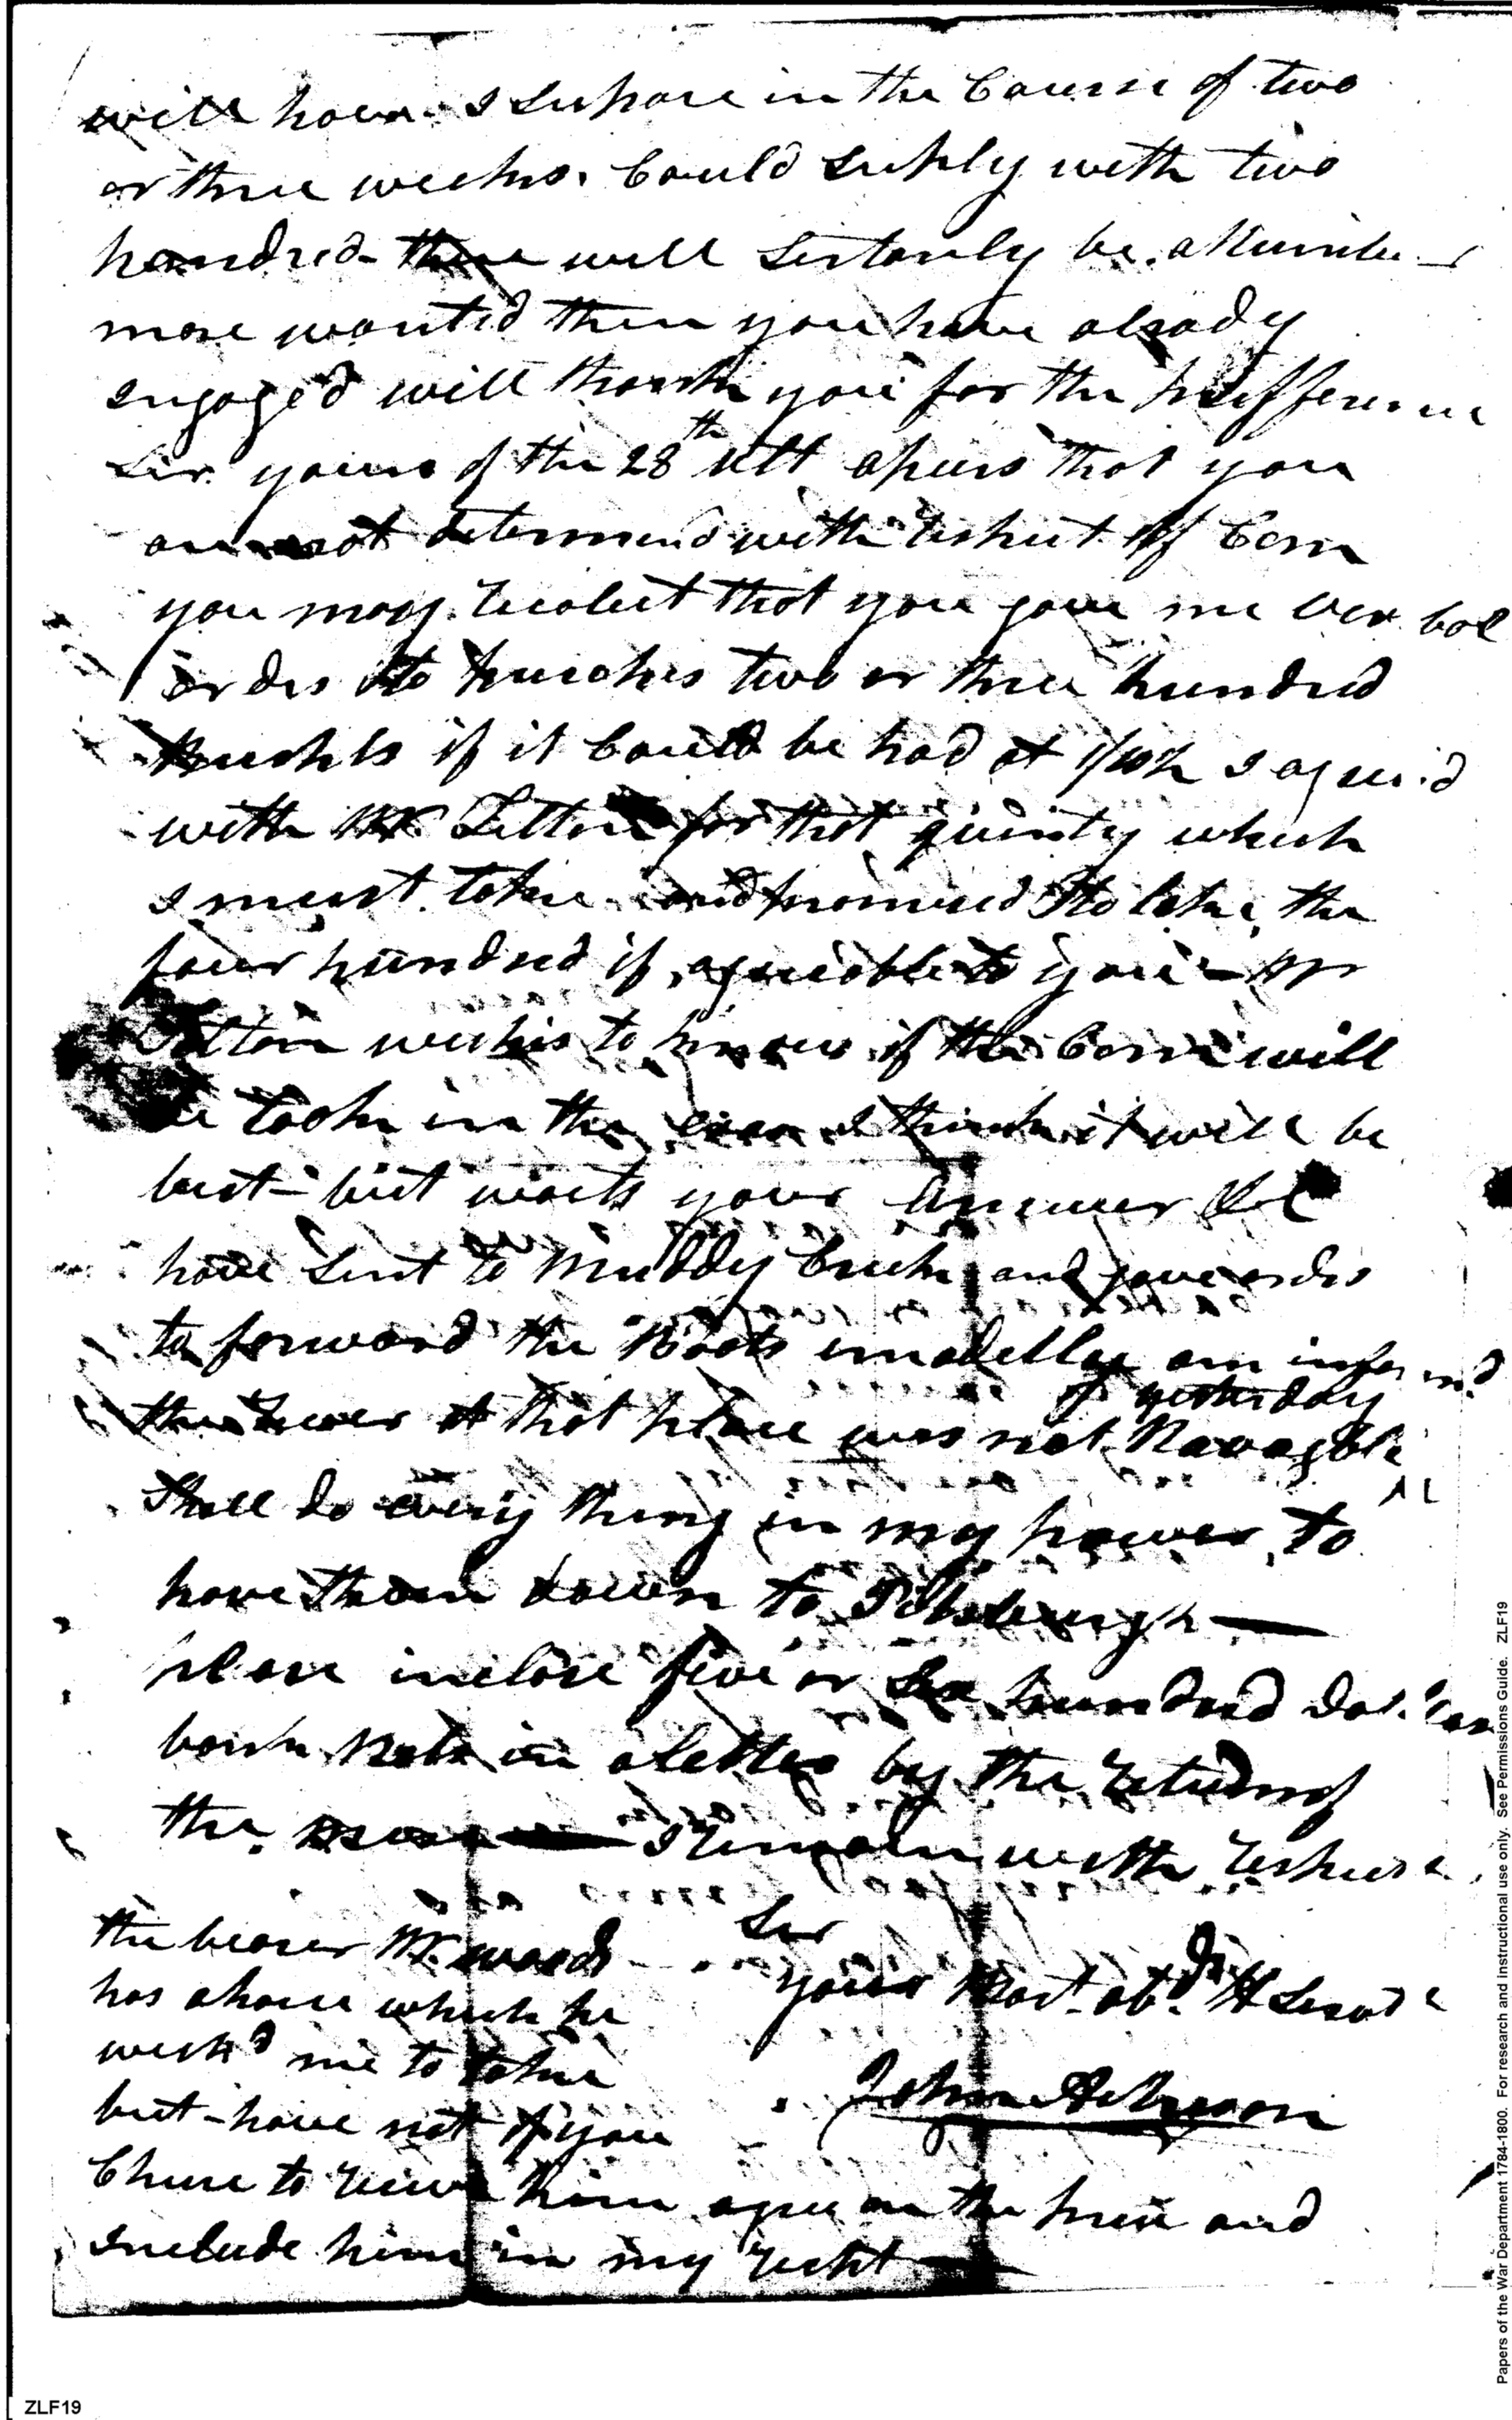 will have I supose in the Course of two
or three weeks. Could suply with two
hundred there will sertanly be a Number
more wanted then you have alrady
engaged will thank you for the prefference
Sir yours of the 28th Ult apears that you
are not determend with respect of Corn
you may recolect that you gave me verbal
orders to purches two or three hundred
Bushls if it Could be had at 1/10h I agreed
with Mr for that quinty which
I must take and promised to take the
four hundred if agreeable to you - Mr
wishes to know if the Corn will
be took in the I think it will be
best - but waits your Answer
have Sent to Muddy Creek and gave orders
to forward the Boats imadetley am informd
of yesterday
the river at that place was not Navagable
Shall do every thing in my power to
have them down to Pittsburgh —
please inclose five or Six hundred Dollars
bank Nots in a letter by the return of
the — I remain with respect
Sir
your Most obd. H Servt
John
the bearer Mr woods
has a horse which he
wishd me to take
but have not if you
Chuse to receive him agree on the price and
include him in my recept
ZLF19
Papers of the War Department 1784-1800. For research and instructional use only. See Permissions Guide. ZLF19